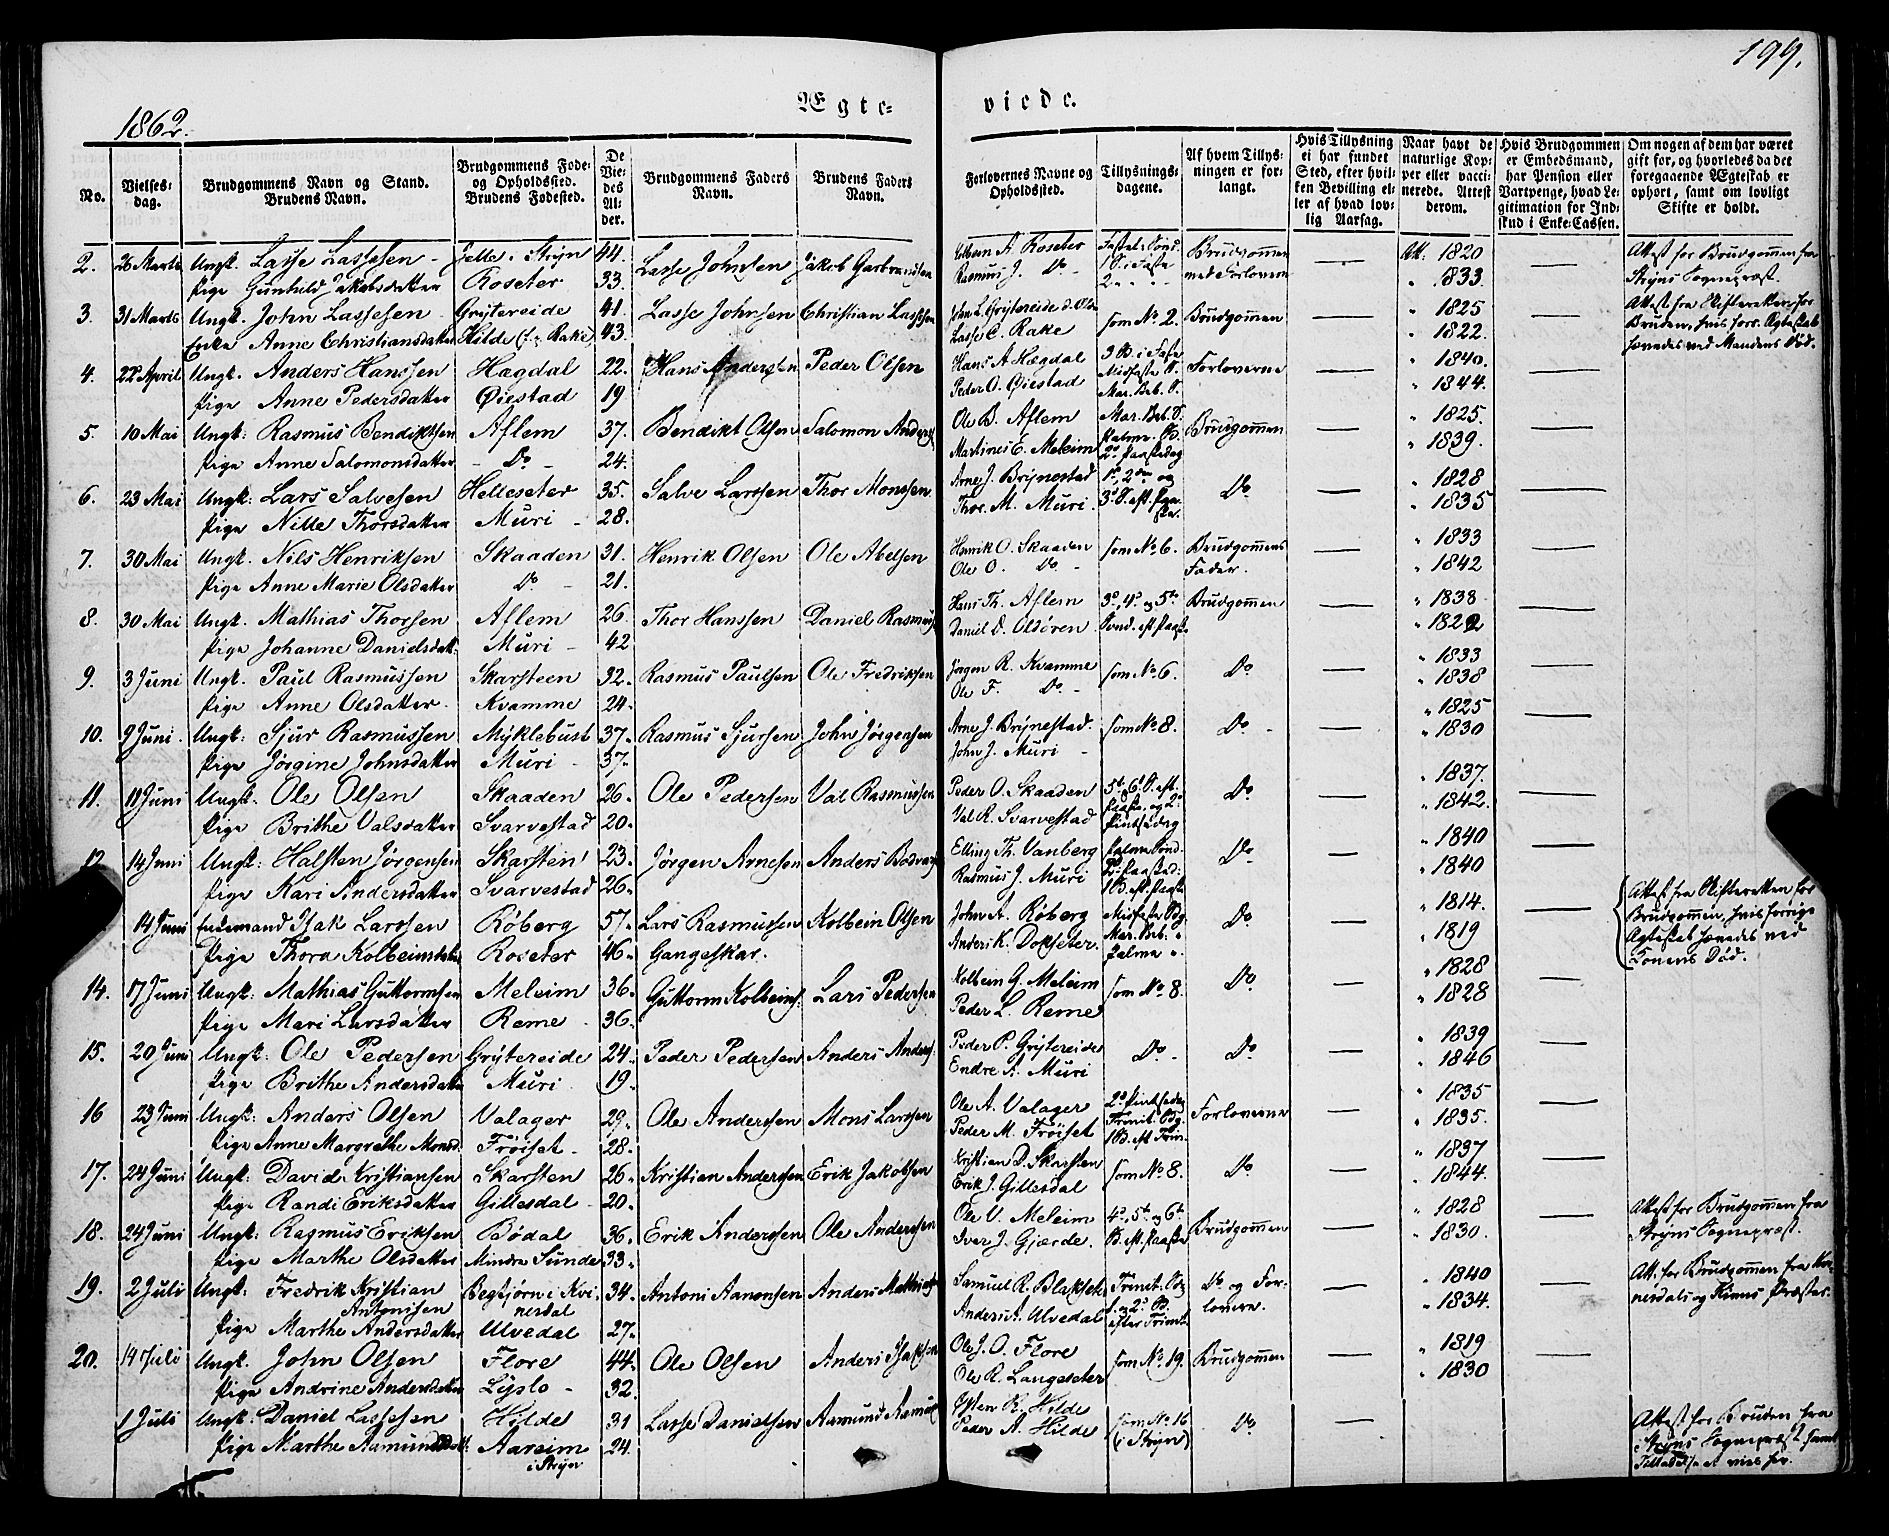 199.
1862.
Ægte- viede.
No.
Vielses-dag.
Brudgommens Navn og Stand. Brudens Navn.
Brudgommens Føde- og Opholdssted. Brudens Fødested.
De Viedes Alder.
Brudgommens Faders Navn.
Brudens Faders Navn.
Forlovernes Navne og Opholdssted.
Tillysnings-dagene.
Af hvem Tillysningen er forlangt.
Hvis Tillysning ei har fundet Sted, efter hvilken Bevilling eller af hvad lovlig Aarsag.
Naar havt de naturlige Kopper eller vaccinerede. Attest derom.
Hvis Brudgommen er Embedsmand, har Pension eller Vartpenge, hvad Legitimation for Indskud i Enke-Cassen.
Om nogen af dem har været gift før, og hvorledes da det foregaaende Ægteskab er ophørt, samt om lovligt Skifte er holdt.
2. 26 Marts Ungk. Lasse Lassesen Stryn 44. Lasse Johnsen Jakob A. Roseter Brudgommen Att. 1820 Attest for Brudgommen fra
Pige Gunhild Jakobsdatter Roseter 33. Rasmus J. Do med Forloveren " 1833. Stryns Sognepræst.
3. 31 Marts Ungk. John Lassesen Grytereide 41. Lasse Johnsen Christian Lassesen John L. Grytereide som No 2. Brudgommen " 1825 Attest fra Skifteretten for
Enke Anne Christiansdatter Hilde (f. Rake) 43. Lasse C. Rake " 1822. Bruden, hvis forr. Egteskab hævedes ved Mandens Død.
4. 22 April Ungk. Anders Hanssen Hagdal 22. Hans Andersen Peder Olsen Hans A Hagdal 3 S. i Faste Midfaste S. Mar. Beb. S. Forloverne " 1840.
Pige Anne Pedersdatter Øiestad 19 Peder O. Øiestad " 1844.
5. 10 Mai Ungk. Rasmus Bendiktsen Aflem 37. Bendikt Olsen Salomon Anders Ole B. Aflem Mar. Beb. S. Palme S. 2d Paaskedag Brudgommen " 1825.
Pige Anne Salomonsdatter Do 24. Martines E. Meleim " 1839.
6. 23 Mai Ungk. Lars Salvesen Helleseter 35. Salve Larssen Thor Monssen Arne J. Brynestad 1s, 2den og 3d S. eft. Paaske. Do " 1828
Pige Nille Thorsdatter Muri 28. Thor M. Muri " 1835
7. 30 Mai Ungk. Nils Henriksen Skaaden 31. Henrik Olsen Ole Abelsen Henrik O. Skaaden som No 6. Brudgommens Fader. " 1833
Pige Anne Marie Olsdatter Do 21. Ole O. Do " 1842
8. 30 Mai Ungk. Mathias Thorsen Aflem 26. Thor Hanssen Daniel Rasmus Hans Th. Aflem 3d, 4d og 5te Sønd. eft. Paaske Brudgommen " 1838
Pige Johanne Danielsdatt. Muri 42 Daniel D. Oldøren " 1822
9. 3 Juni Ungk. Paul Rasmussen Skarsteen 32. Rasmus Paulsen Ole Fredriksen Jørgen R. Kvamme som No 6. Do " 1833
Pige Anne Olsdatter. Kvamme 24. Ole F. Do " 1838
10. 9 Juni Ungk: Sjur Rasmussen Myklebust 37. Rasmus Sjursen John Jørgensen Arne J. Brynestad. som No 8. Do " 1825
Pige Jørgine Johnsdatter Muri 37. John J. Muri " 1830
11. 11 Juni Ungk. Ole Olsen Skaaden 26. Ole Pedersen Val Rasmussen Peder O. Skaaden 5te, 6d S. eft. Paaske og 2d Pintsedag Do " 1837.
Pige Brithe Valsdatter Svarvestad 20. Val R. Svarvestad " 1842.
12 14 Juni Ungk: Halsten Jørgensen Skarsten 23. Jørgen Arnesen Anders Bodvars Elling Th. Vanberg Palme Sønd. 2d Paasked: 1 S. eft. Paaske Do " 1840
Pige Kari Andersdatter Svarvestad 26. Rasmus J. Muri " 1840
14 Juni Enkemand Isak Larssen Røberg 57. Lars Rasmussen Kolbein Olsen John A. Røberg Midfaste Mar. Beb: Palme ". Do " 1814. Attest fra Skifteretten for
Pige Thora Kolbeinsdatter Roseter 46. Gangeskar. Anders K. Dokseter. " 1819 Brudgommen, hvis forrige Egteskab hævedes ved Konens Død.
14. 17 Juni Ungk: Mathias Guttormsen Meleim 36. Guttorm Kolbeins. Lars Pedersen Kolbein G. Meleim som No 8. Do " 1828
Pige Mari Larsdatter Reme 36. Peder L. Reme " 1828
15. 20 Juni Ungk: Ole Pedersen Grytereide 24. Peder Pedersen Anders Anders. Peder P. Grytereide Do Do " 1839
Pige Brithe Andersdatter Muri 19. Endre A. Muri " 1846
16 23 Juni Ungk: Anders Olsen Valager 29. Ole Andersen Mons Larssen Ole A. Valager 2d Pintsedag Trinit. Sdg. 1 S. eft Trin. Forloverne " 1835
Pige Anne Margrethe Monsd. Frøiset 28. Peder M. Frøiset " 1835.
17. 24 Juni Ungk: David Kristiansen Skarsten 26. Kristian Andersen Erik Jakobsen Kristian D. Skarsten som No 8. Do " 1837
Pige Randi Eriksdatter Gillesdal 20. Erik J. Gillesdal " 1844.
18. 24 Juni Ungk: Rasmus Eriksen Bødal 36. Erik Andersen Ole Andersen Ole V. Meleim 4d, 5te og 6te S. eft. Paaske Brudgommen " 1828 Attest for Brudgommen fra
Pige Marthe Olsdatter Mindre Sunde 33. Iver J. Gjærde. " 1830. Stryns Sognepræst.
19. 2 Juli Ungk: Fredrik Kristian Antonisen Begstjørn i Kvinesdal 34. Antoni Aanensen Anders Mathias Samuel R. Blakset Trinit. Sdg 1. og 2d S. efter Trinit. Do og Forloveren. " 1840 Att. for Brudgommen fra Kvinesdals og Kinns Præster.
Pige Marthe Andersdatter Ulvedal 27. Anders A. Ulvedal " 1834.
20. 14 Juli Ungk. John Olsen Flore 44. Ole Olsen Anders Isaksen Ole J. O. Flore som No 19. Brudgommen " 1819
Pige Andrine Andersdatter Lyslo 32. Ole R. Langeseter " 1830
1 Juli Ungk: Daniel Lassesen Hilde 31 Lasse Danielsen Aamund R. Hilde som No 16 (i Stryn) Do Attest for Bruden fra
Pige Marthe Aamundsdatt. Aareim i Stryn 24. Peder A. Hilde Stryns Sognepræst samt Tilladelse at vies her.